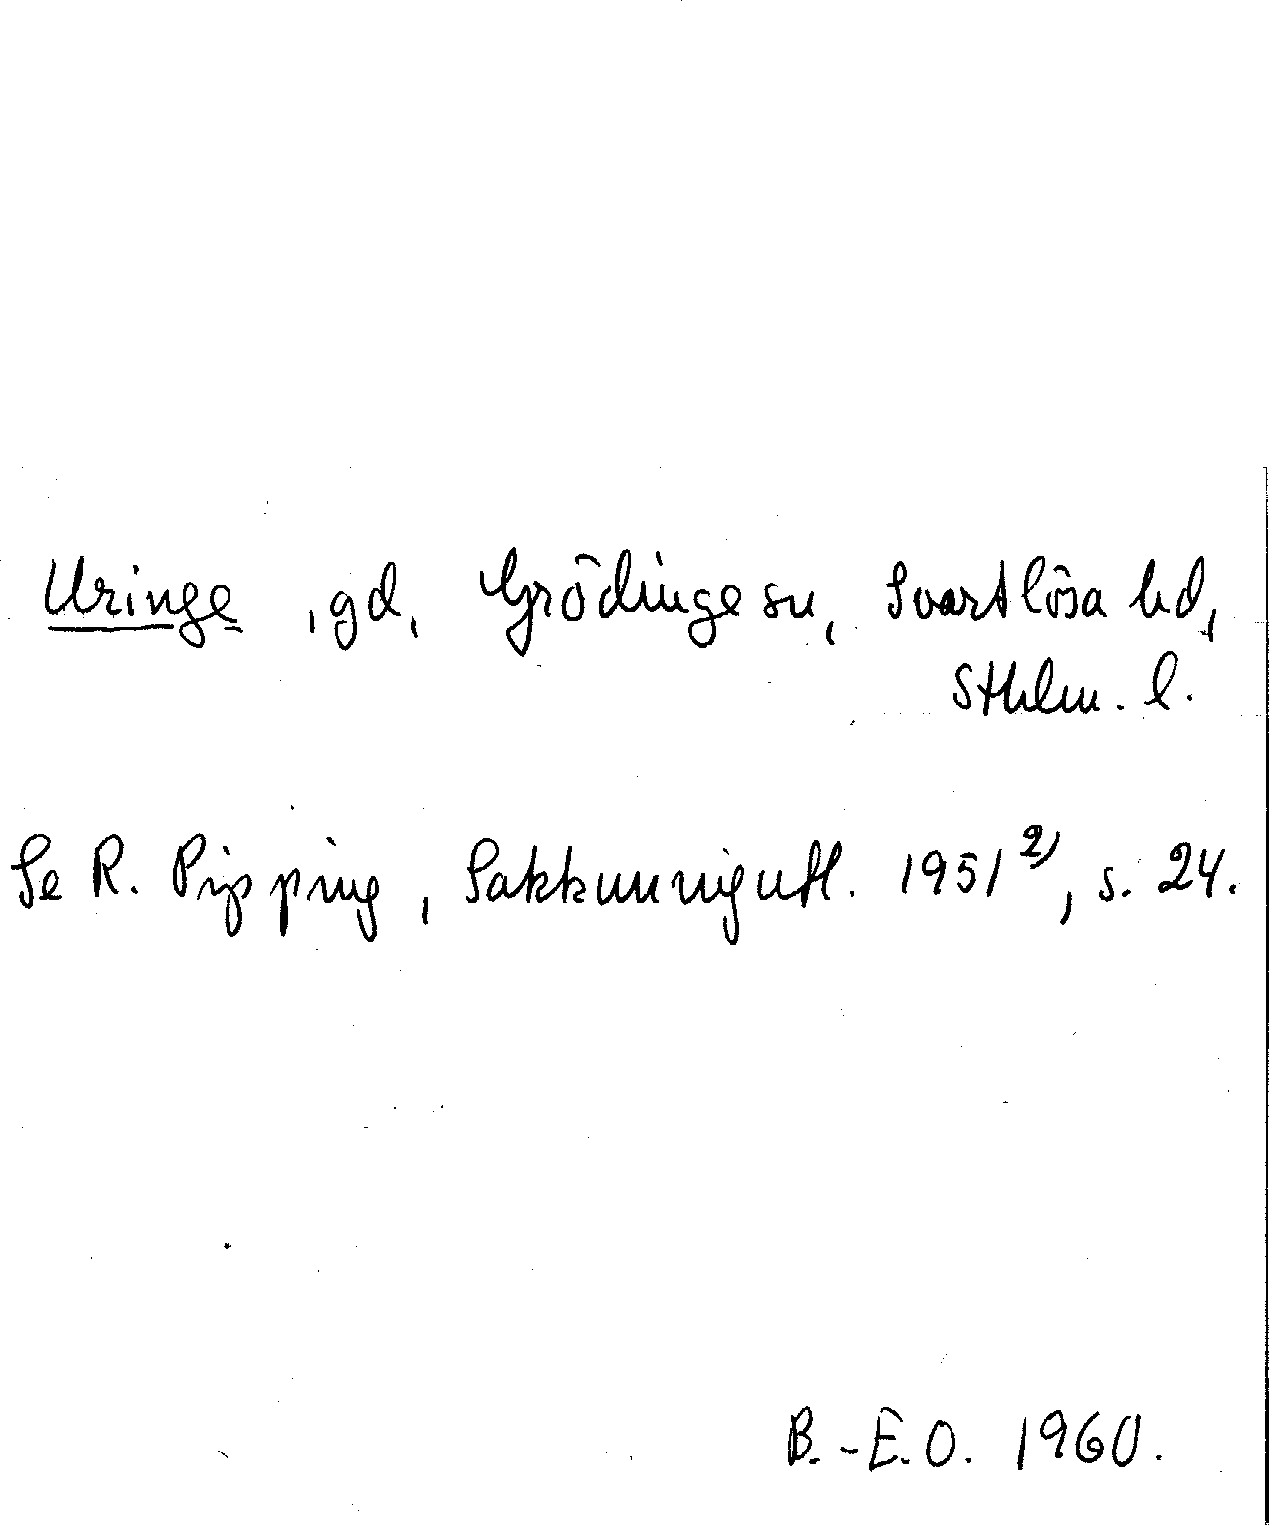 Uringe, gd, Grödinge sn, Svartlösa hd,
Sthlm. l.
Se R. Pipping, Sakkunnigutl. 1951 2), s. 24.
B.-E.O. 1960.